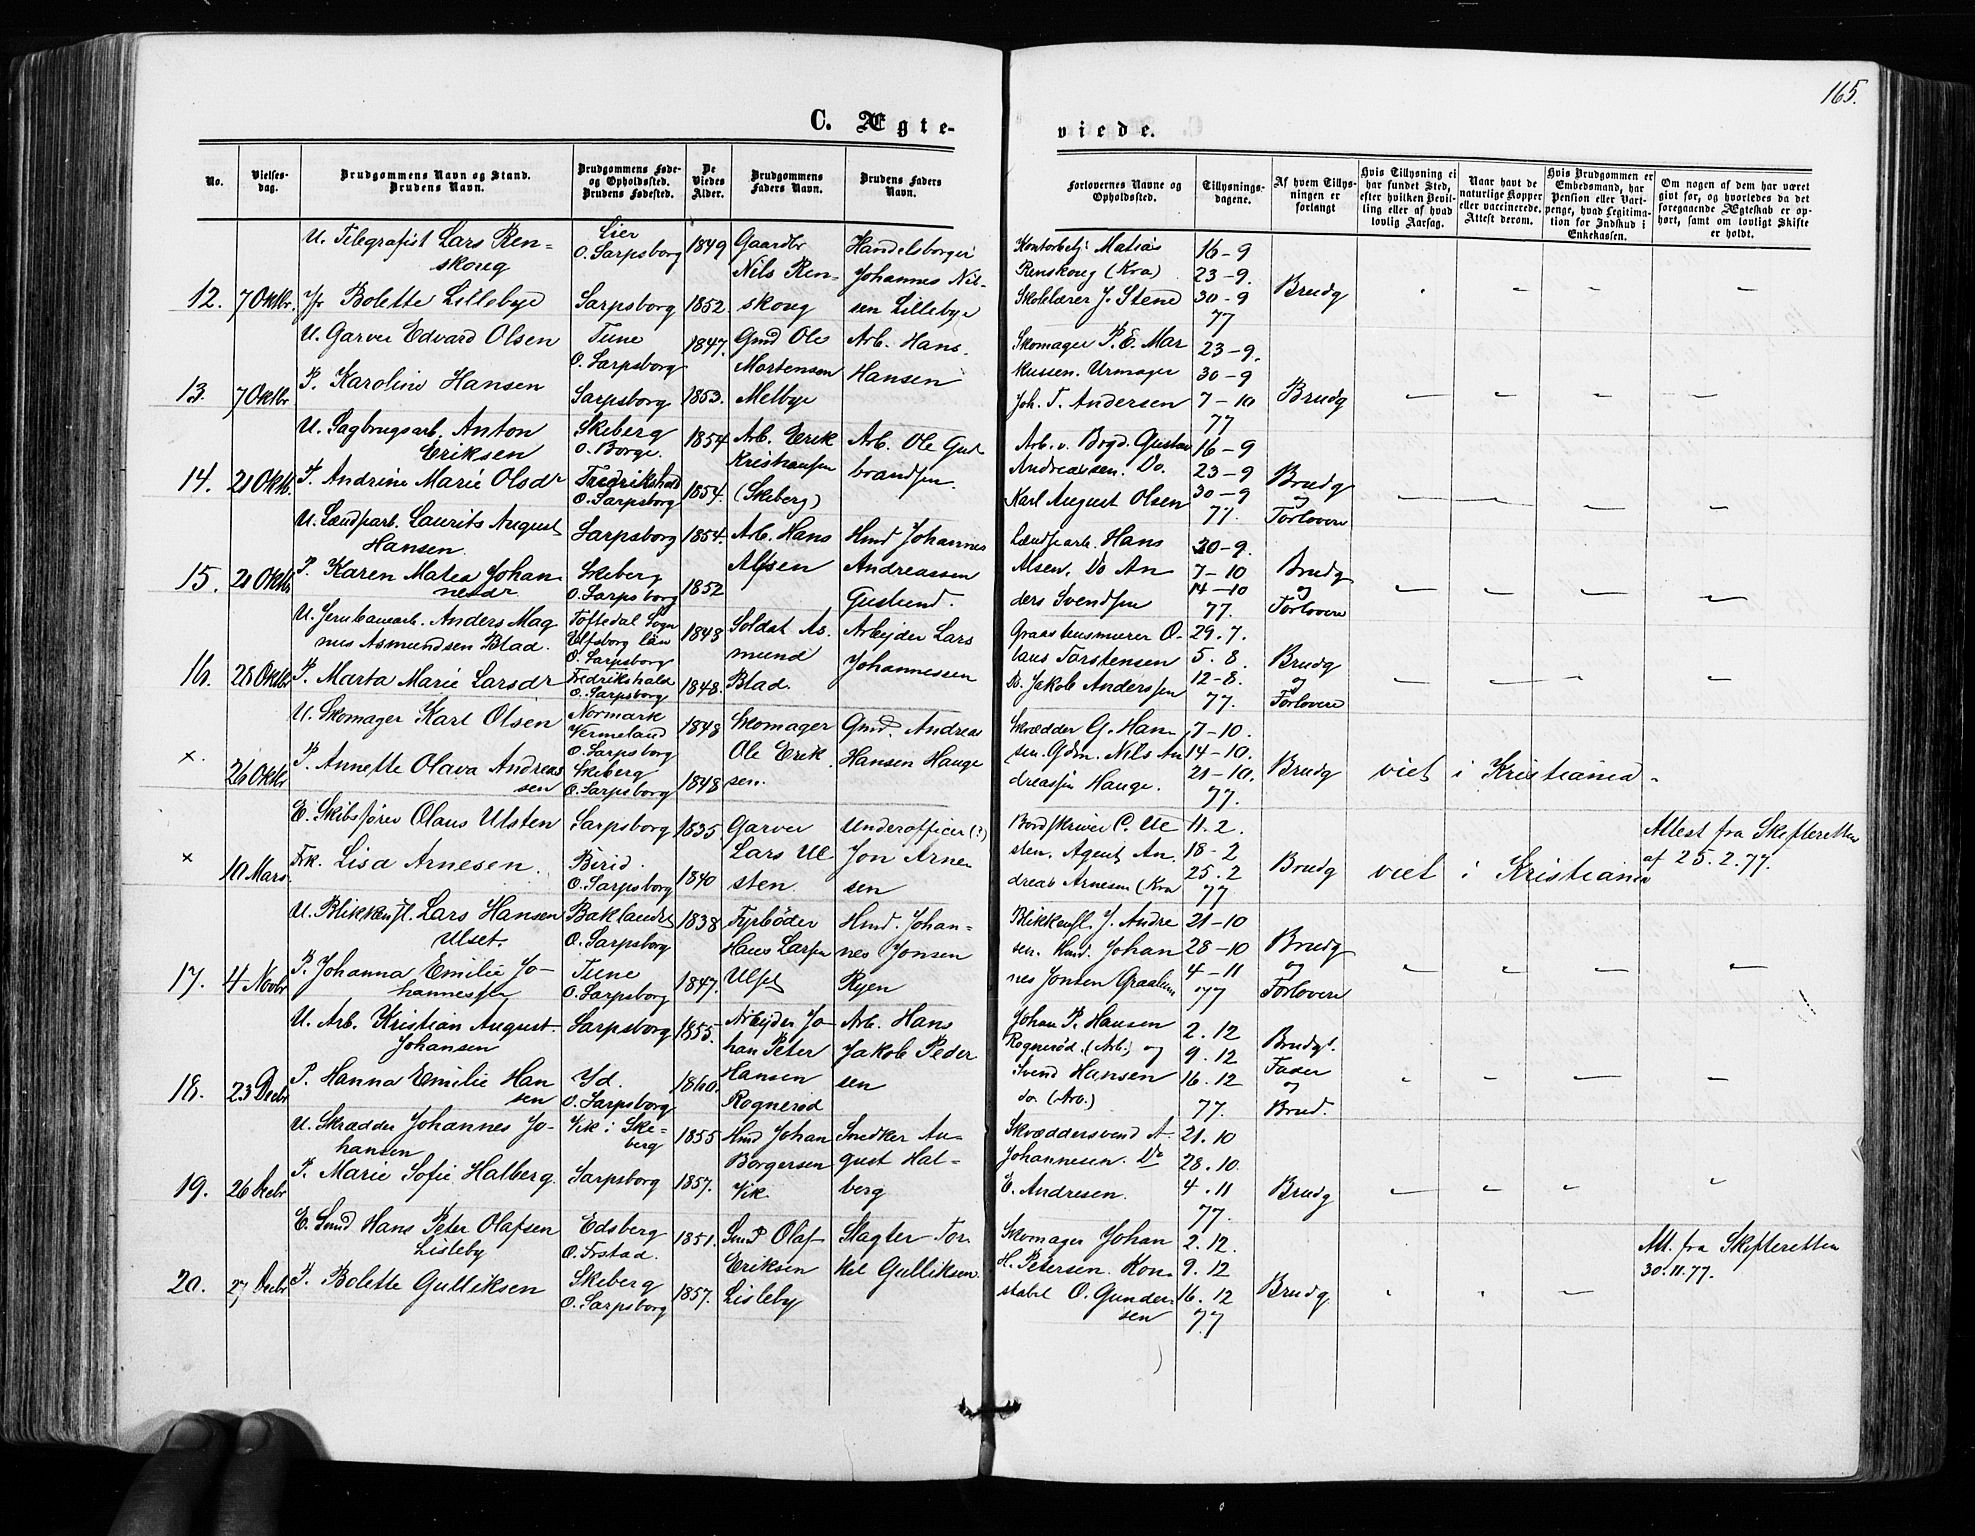 165.
C. Ægte-
viede.
No.
Vielses-
dag.
Brudgommens Navn og Stand.
Brudens Navn.
Brudgommens Føde-
og Opholdssted.
Brudens Fødested.
De
Viedes
Alder.
Brudgommens
Faders Navn.
Brudens Faders
Navn.
Forlovernes Navne og
Opholdssted.
Tillysnings-
dagene.
Af hvem Tillys-
ningen er
forlangt
Hvis Tillysning ei
har fundet Sted,
efter hvilken Bevil-
ling eller af hvad
lovlig Aarsag.
Naar havt de
naturlige Kopper
eller vaccinerede.
Attest derom.
Hvis Brudgommen er
Embedsmand, har
Pension eller Vart-
penge, hvad Legitima-
tion for Indskud i
Enkekassen.
Om nogen af dem har været
gift før, og hvorledes da det
foregaaende Ægteskab er op-
hørt, samt om lovligt Skifte
er holdt.
12. 7 Oktbr.
U. Telegrafist Lars Ren-
skoug
Jfr Bolette Lillebye
Lier
O. Sarpsborg
Sarpsborg
1849
1852.
Gaardbr
Nils Ren-
skoug
Handelsborger
Johannes Nil-
sen Lillebye
Kontorbetj: Matias
Renskoug (Kra)
Skolelærer J. Stene
16-9
23-9.
30-9
77
Brudg
13. 7 Oktbr
U. Garver Edvard Olsen
P. Karoline Hansen
Tune
O. Sarpsborg
Sarpsborg
1847.
1853.
Gmd Ole
Mortensen
Melbye
Arb. Hans
Hansen
Skomager P. E. Mar
kussen. Urmager
Joh. T. Andersen
23-9.
30-9
7-10
77
Brudg
14. 21 Oktb.
U. Sagbrugsarb. Anton
Eriksen
P. Andrine Marie Olsdr
Skeberg
O. Borge.
Fredrikshald
O. Sarpsborg
1854
1854.
Arb. Erik
Kristiansen
(Skeberg)
Arb. Ole Gud
brandsen.
Arb. v. Bogd. Gustav
Andreassen. Do.
Karl August Olsen
16-9
23-9
30-9
77.
Brudg
og
Forlovere
15. 21 Oktbr
U. Landsarb. Laurits August
Hansen.
P. Karen Matea Johan
nesdr
Sarpsborg
Skeberg
O. Sarpsborg
1854.
1852
Arb. Hans
Alsen
Hmd Johannes
Andreassen
Guslund.
Landsarb. Hans
Alsen. Do An
ders Svendsen
30-9.
7-10
14-10
77.
Brudg
og
Forlovere
16. 28 Oktbr
U. Jernbanearb. Anders Mag
nus Asmundsen Blad.
P. Marta Marie Larsdr
Töftedal Sogn
Elfsborg län
O. Sarpsborg
Fredrikshald
O. Sarpsborg
1848
1848.
Soldat As.
mund
Blad.
Arbejder Lars
Johannessen
Graastensmurer O.
laus Torstensen
Do. Jakob Anderssen
29. 7.
5. 8.
12-8.
77.
Brudg
og
Forlovere
x. 26 Oktbr
U. Skomager Karl Olsen
P. Annette Olava Andreas
sen
Normark
Vermeland
O. Sarpsborg
Skeberg
O. Sarpsborg
1848
1848
Skomager
Ole Erik
sen.
Gmd. Andreas
Hansen Hauge
Skrædder G. Han
sen. Gdm. Nils An
dreassen Hauge.
7-10.
14-10.
21-10.
77.
Brudg
viet i Kristiania
x 10 Mars.
E. Skibsfører Olaus Ulsten
Frk. Lisa Arnesen.
Sarpsborg
Birid.
O. Sarpsborg
1835
1840
Garver
Lars Ul
sten.
Underofficer (?)
Jon Arne
sen
Bordskriver C. Ul
sten. Agent An
dreas Arnesen (Kra
11. 2.
18-2
25. 2
77
Brudg
viet i Kristiania
Attest fra Skifteretten
af 25. 2. 77.
17. 4 Novbr
U. Blikkensl. Lars Hansen
Ulset.
P. Johanna Emilie Jo-
hannessen
Baklandet
O. Sarpsborg
Tune
O. Sarpsborg
1838
1847.
Fyrbøder
Hans Larsen
Ulset
Hmd. Johan-
nes Jonsen
Ryen
Blikkensl. J. Andre
sen. Hmd. Johan
nes Jonsen Graalum
21-10
28-10
4-11
77
Brudg
og
Forlovere
18. 23 Decbr
U. Arb. Kristian August
Johansen
P. Hanna Emilie Han
sen
Sarpsborg
Id.
O. Sarpsborg
1855.
1860.
Arbejder Jo-
han Peter
Hansen
Rognerød
Arb. Hans
Jakob Peder
sen
Johan P. Hansen
Rognerød. (Arb.) og
Svend Hansen
do. (Arb.)
2. 12
9. 12
16. 12
77.
Brudgs.
Fader
og
Brud.
19. 26 Decbr
U. Skrædder Johannes Jo-
hansen
P. Marie Sofie Halberg.
Vik i Ske-
berg
Sarpsborg
1855
1857.
Hmd Johan
Borgersen
Vik.
Snedker Au-
gust Hal-
berg
Skræddersvend A.
Johannesen. Do
E. Andresen.
21. 10
28. 10
4. 11
77.
Brudg
20. 27 Decbr
E. Smd Hans Peter Olafsen
Lisleby
P. Bolette Gulliksen
Edsberg
O. Frstad.
Skeberg
O. Sarpsborg
1851.
1857.
Smd Olaf
Eriksen
Lisleby
Slagter Tor
kel Gulliksen.
Skomager Johan
H. Petersen. Kon-
stabel O. Gunder-
sen
2. 12.
9. 12
16. 12
77
Brudg
Att. fra Skifteretten
30. 11. 77.